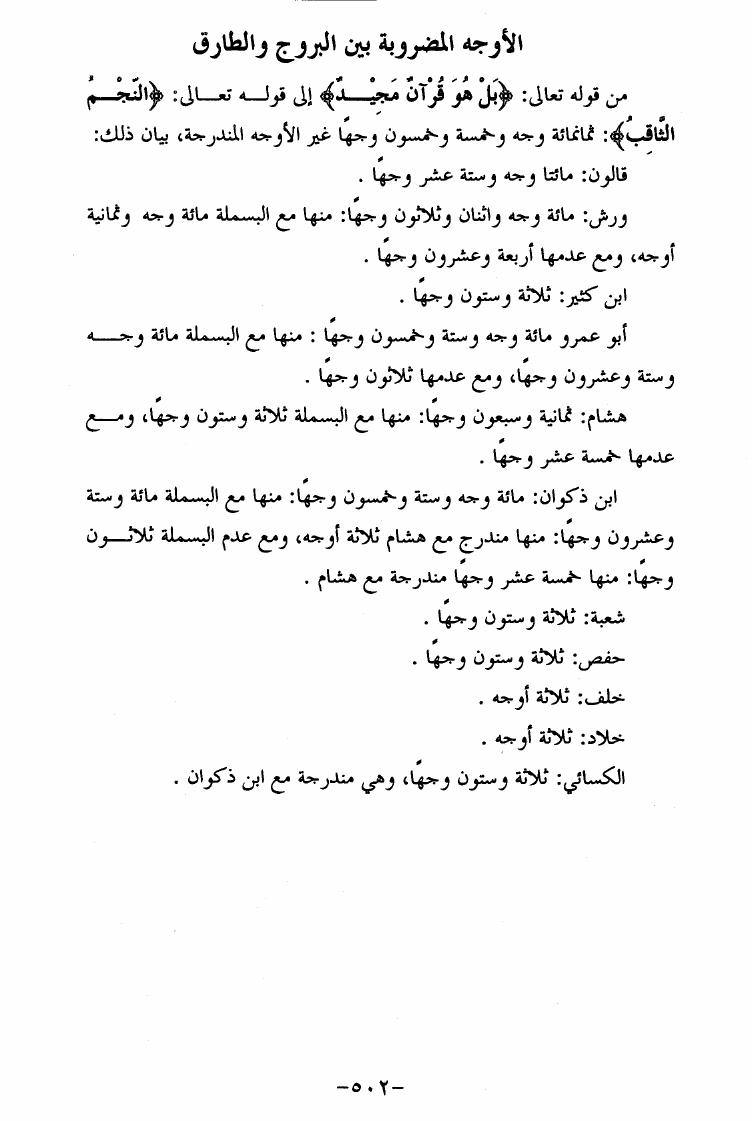 الأوجه المضروبة بين البروج والطارق
من قوله تعالى: ﴿بَلْ هُوَ قُرْآنٌ مَجِيْـــدٌ﴾ إلى قولـــه تعـــالى: ﴿النَّجْـــمُ
الثَّاقِبُ﴾: ثمانمائة وجه وخمسة وخمسون وجهًا غير الأوجه المندرجة، بيان ذلك:
قالون: مائتا وجه وستة عشر وجهًا .
ورش: مائة وجه واثنان وثلاثون وجهًا: منها مع البسملة مائة وجه وثمانية
أوجه، ومع عدمها أربعة وعشرون وجهًا .
ابن كثير: ثلاثة وستون وجهًا .
أبو عمرو مائة وجه وستة وخمسون وجهًا : منها مع البسملة مائة وجـــه
وستة وعشرون وجهًا، ومع عدمها ثلاثون وجهًا .
هشام: ثمانية وسبعون وجهًا: منها مع البسملة ثلاثة وستون وجهًا، ومـــع
عدمها خمسة عشر وجهًا .
ابن ذكوان: مائة وجه وستة وخمسون وجهًا: منها مع البسملة مائة وستة
وعشرون وجهًا: منها مندرج مع هشام ثلاثة أوجه، ومع عدم البسملة ثلاثـــون
وجهًا: منها خمسة عشر وجهًا مندرجة مع هشام .
شعبة: ثلاثة وستون وجهًا .
حفص: ثلاثة وستون وجهًا .
خلف: ثلاثة أوجه .
خلاد: ثلاثة أوجه .
الكسائي: ثلاثة وستون وجهًا، وهي مندرجة مع ابن ذكوان .
-٥٠٢-